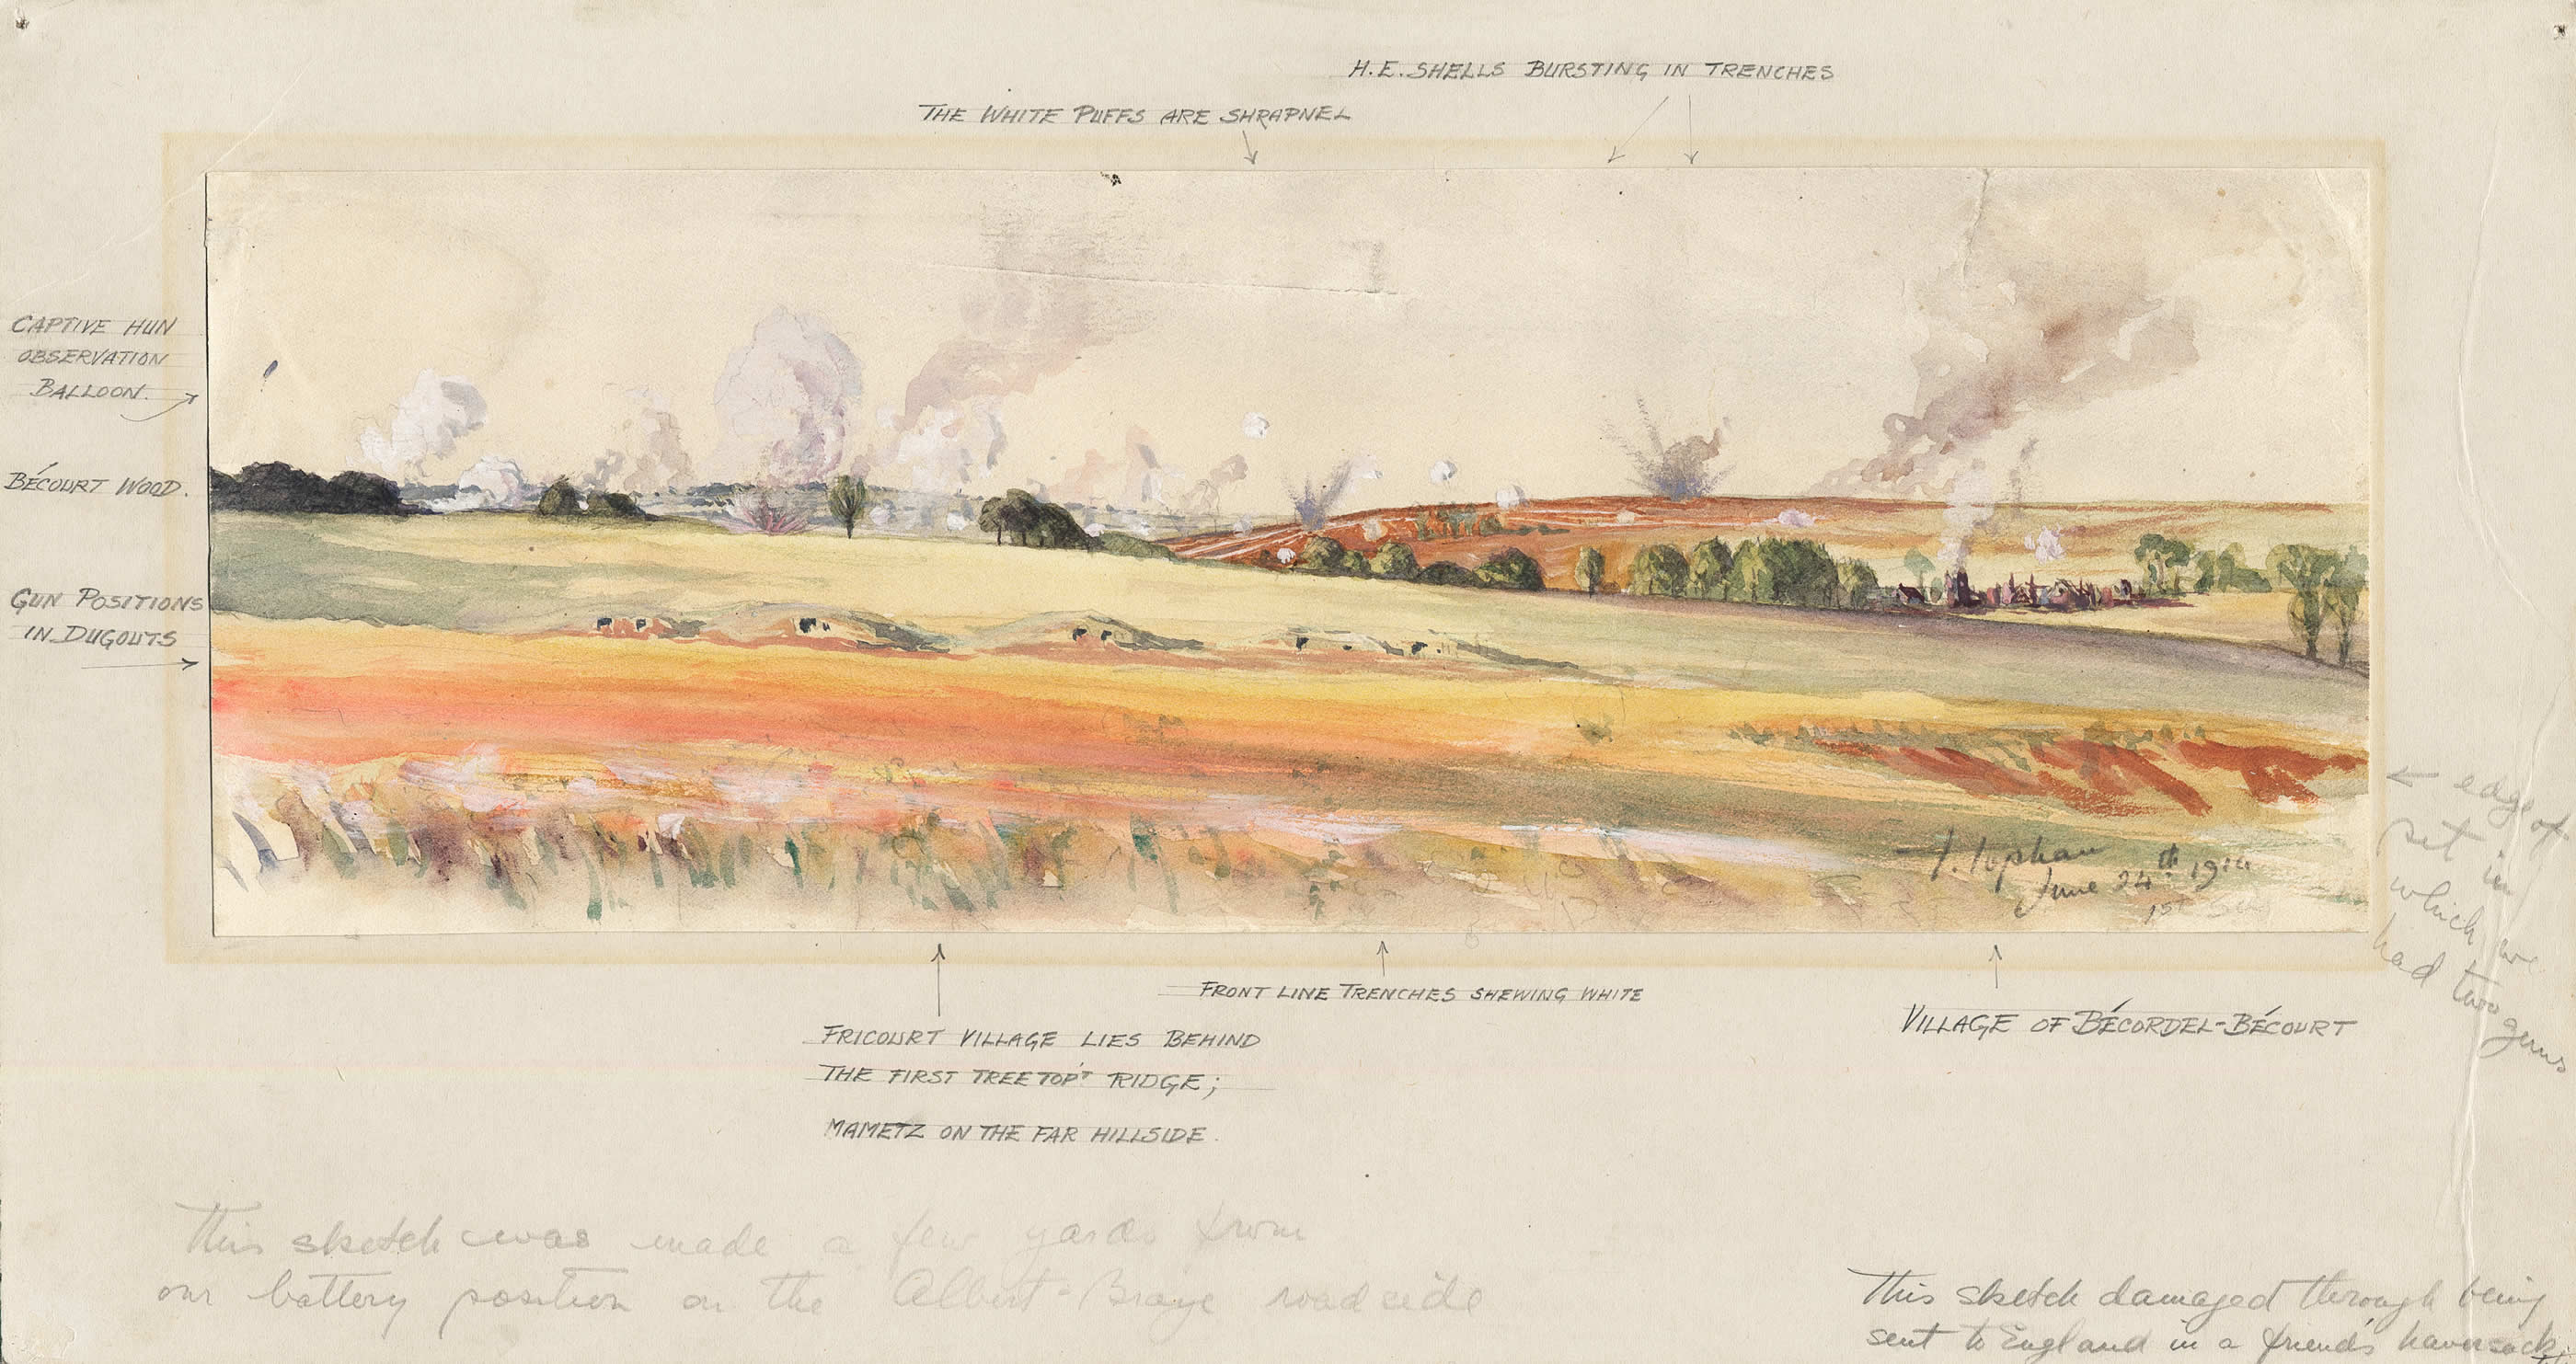 H.E. SHELLS BURSTING IN TRENCHES
THE WHITE PUFFS ARE SHRAPNEL
CAPTIVE HUN
OBSERVATION
BALLOON.
BÉCOURT WOOD.
GUN POSITIONS
IN DUGOUTS
← edge of
pit in
which we
had two guns
T. Topham
June 24th 1916
1st
FRONT LINE TRENCHES SHEWING WHITE
FRICOURT VILLAGE LIES BEHIND
THE FIRST TREE TOP'T RIDGE;
MAMETZ ON THE FAR HILLSIDE.
VILLAGE OF BÉCORDEL-BÉCOURT
This sketch was made a few yards from
our battery position on the Albert-Braye roadside
This sketch damaged through being
sent to England in a friend's haversack